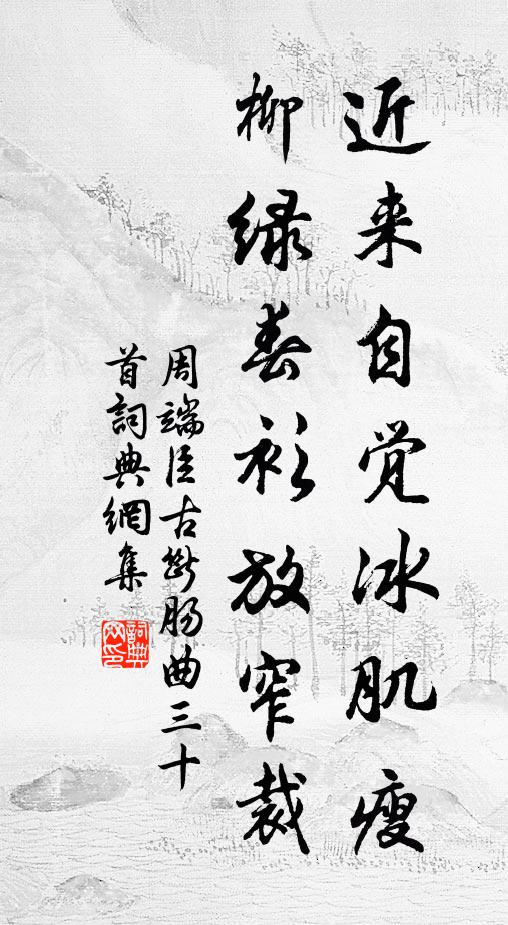 近来自觉冰肌瘦
柳绿春衫放窄裁
周端臣古断肠曲三十
首詞典網集
詞典
网印